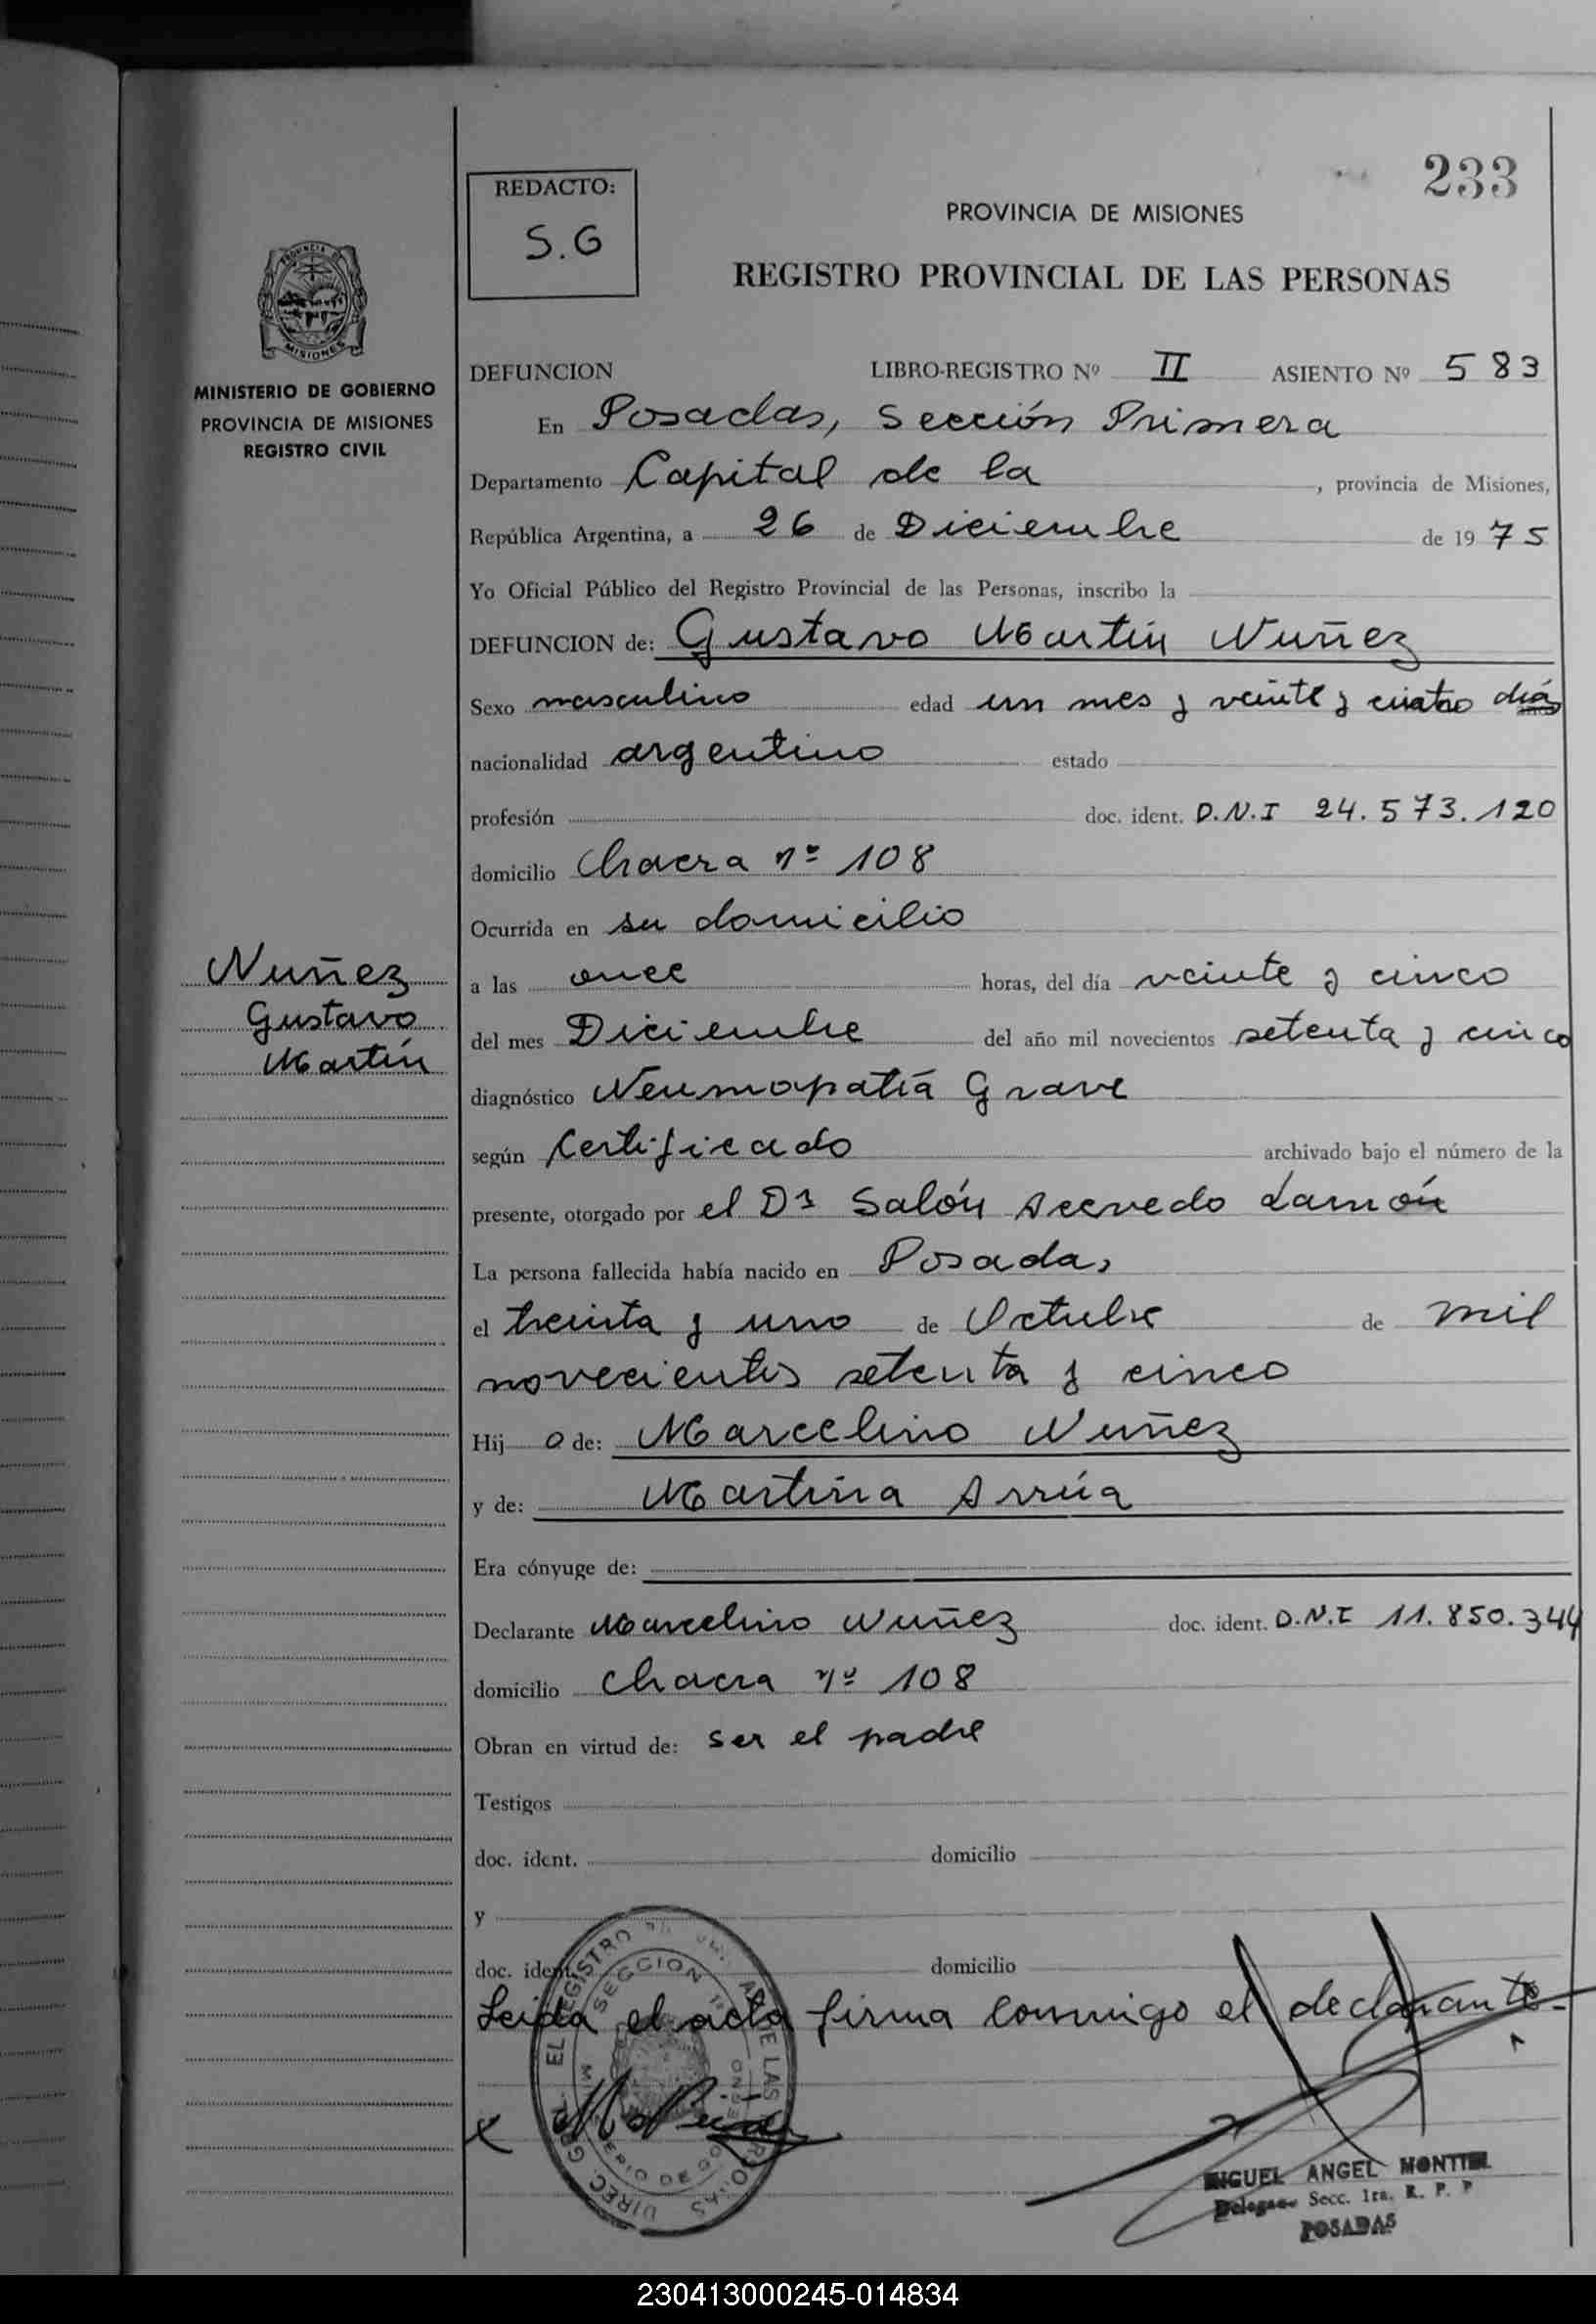 233
REDACTO:
S.G
PROVINCIA DE MISIONES
REGISTRO PROVINCIAL DE LAS PERSONAS
MISIONES
MINISTERIO DE GOBIERNO
PROVINCIA DE MISIONES
REGISTRO CIVIL
DEFUNCION LIBRO-REGISTRO Nº II ASIENTO Nº 583
En Posadas, Sección Primera
Departamento Capital de la, provincia de Misiones,
República Argentina, a 26 de Diciembre de 1975
Yo Oficial Público del Registro Provincial de las Personas, inscribo la
DEFUNCION de: Gustavo Martín Nuñez
Sexo masculino edad un mes y veinte y cuatro días
nacionalidad argentino estado
profesión doc. ident. D.N.I 24.573.120
domicilio Chacra nº 108
Ocurrida en su domicilio
Nuñez
Gustavo
Martín
a las once horas, del día veinte y cinco
del mes Diciembre del año mil novecientos setenta y cinco
diagnóstico Neumopatía Grave
según Certificado archivado bajo el número de la
presente, otorgado por el Dr Salón Acevedo
La persona fallecida había nacido en Posadas
el treinta y uno de Octubre de mil
novecientos setenta y cinco
Hijo de: Marcelino Nuñez
y de: Martina Arrúa
Era cónyuge de:
Declarante Marcelino Nuñez doc. ident. D.N.I 11.850.344
domicilio Chacra nº 108
Obran en virtud de: ser el padre
Testigos
doc. ident. domicilio
y
doc. ident. domicilio
Leida el acta firma conmigo el declarante.-
MIGUEL ANGEL MONTIEL
Delegado Secc. 1ra. R. P. P
POSADAS
230413000245-014834